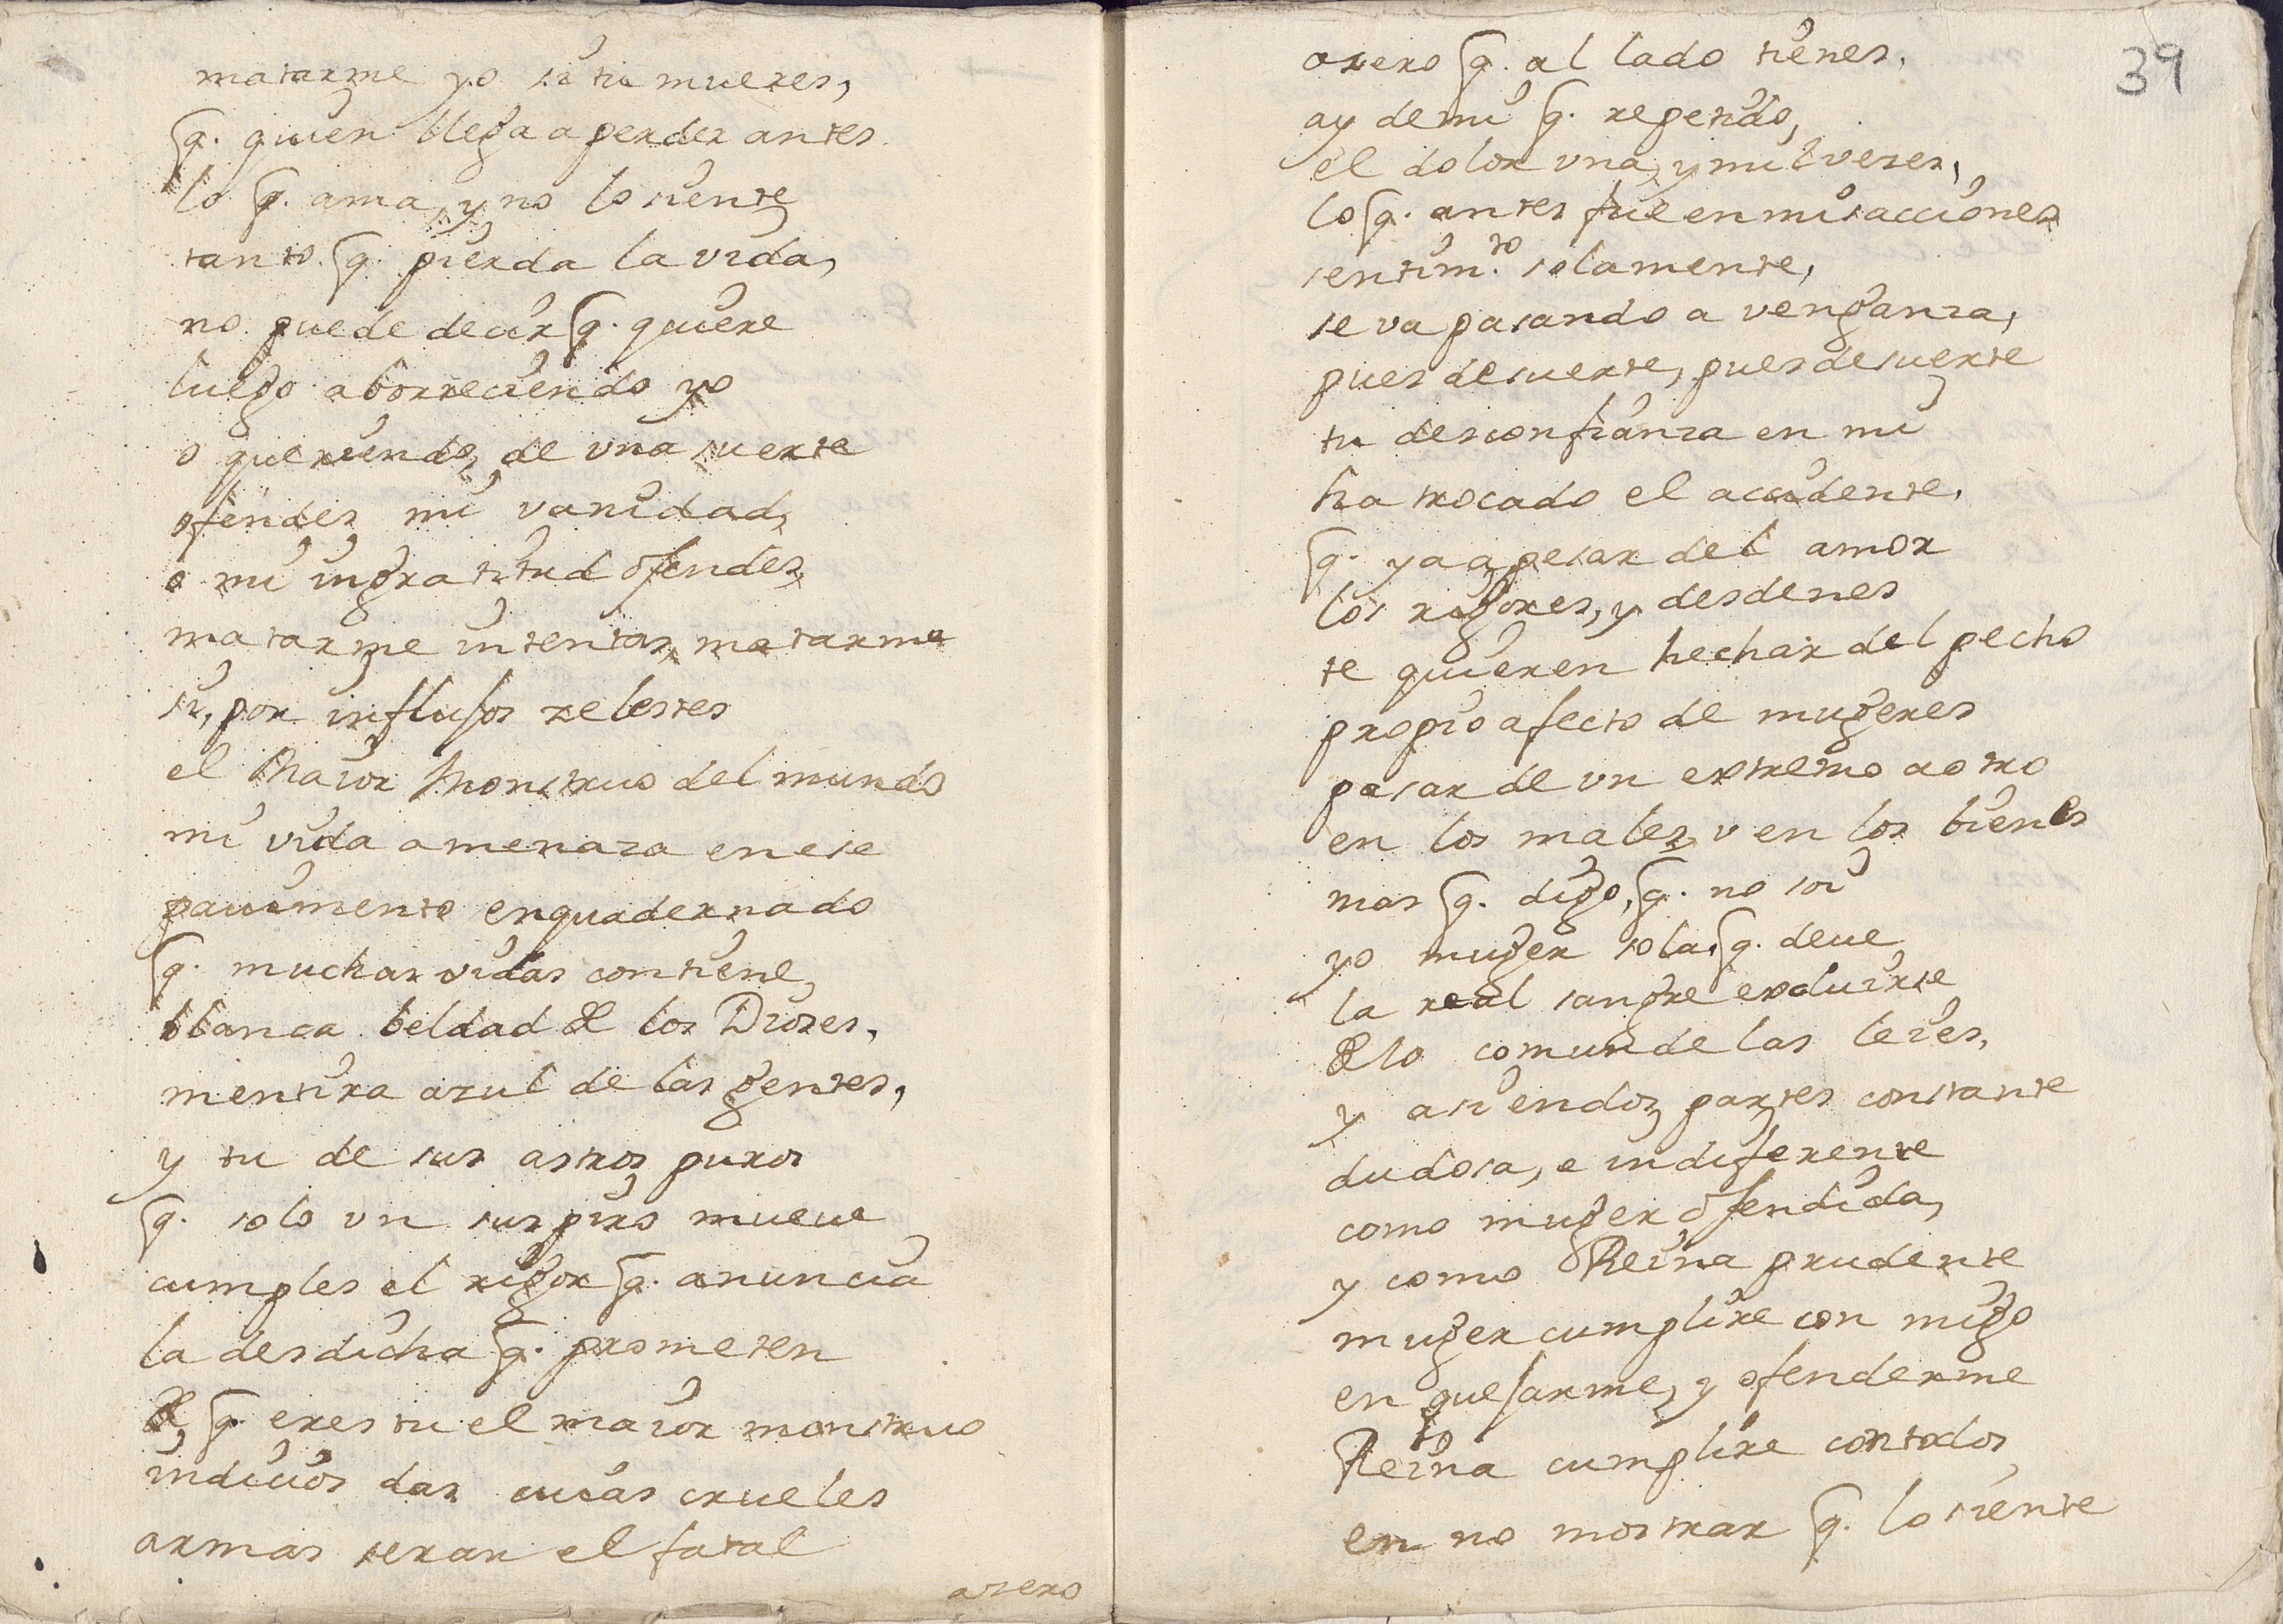 matarme yo si tu mueres,
q. quien llega a perder antes
lo q. ama, y no lo siente
tanto q. pierda la vida,
no puede decir q. quiere
luego aborreciendo yo
o queriendo, de vna suerte
ofendes mi vanidad,
o mi ingratitud ofendes,
matarme intentas, matarme
si, por influsos zelestes
el Maior Monstruo del mundo
mi vida amenaza en ese
pauimento enquadernado
q. muchas vidas contiene,
blanca beldad de los Dioses,
mentira azul de las gentes,
y tu de sus astros puros
q. solo vn suspiro mueue
cumples el rigor q. anuncia
la desdicha q. prometen
de q. eres tu el maior monstruo
indicios das cuias crueles
armas seran el fatal
azero
39
azero q. al lado tienes,
ay de mi q. repetido,
el dolor vna, y mil veses,
lo q. antes fue en mis acciones
sentim.to solamente,
se va pasando a venganza,
pues de suerte, pues de suerte
tu desconfianza en mi
ha trocado el accidente,
q. ya a pesar del amor
los rigores, y desdenes
te quieren hechar del pecho
propio afecto de mugeres
pasar de vn extremo a otro
en los males, v en los bienes
mas q. digo, q. no soi
yo muger sola, q. deue
la real sangre excluirse
de lo comun de las leies,
y asiendos partes constante
dudosa, e indiferente
como muger ofendida,
y como Reina prudente
muger cumplire con migo
en quejarme, y ofenderme
Reina cumplire con todos
en no mostrar q. lo siente